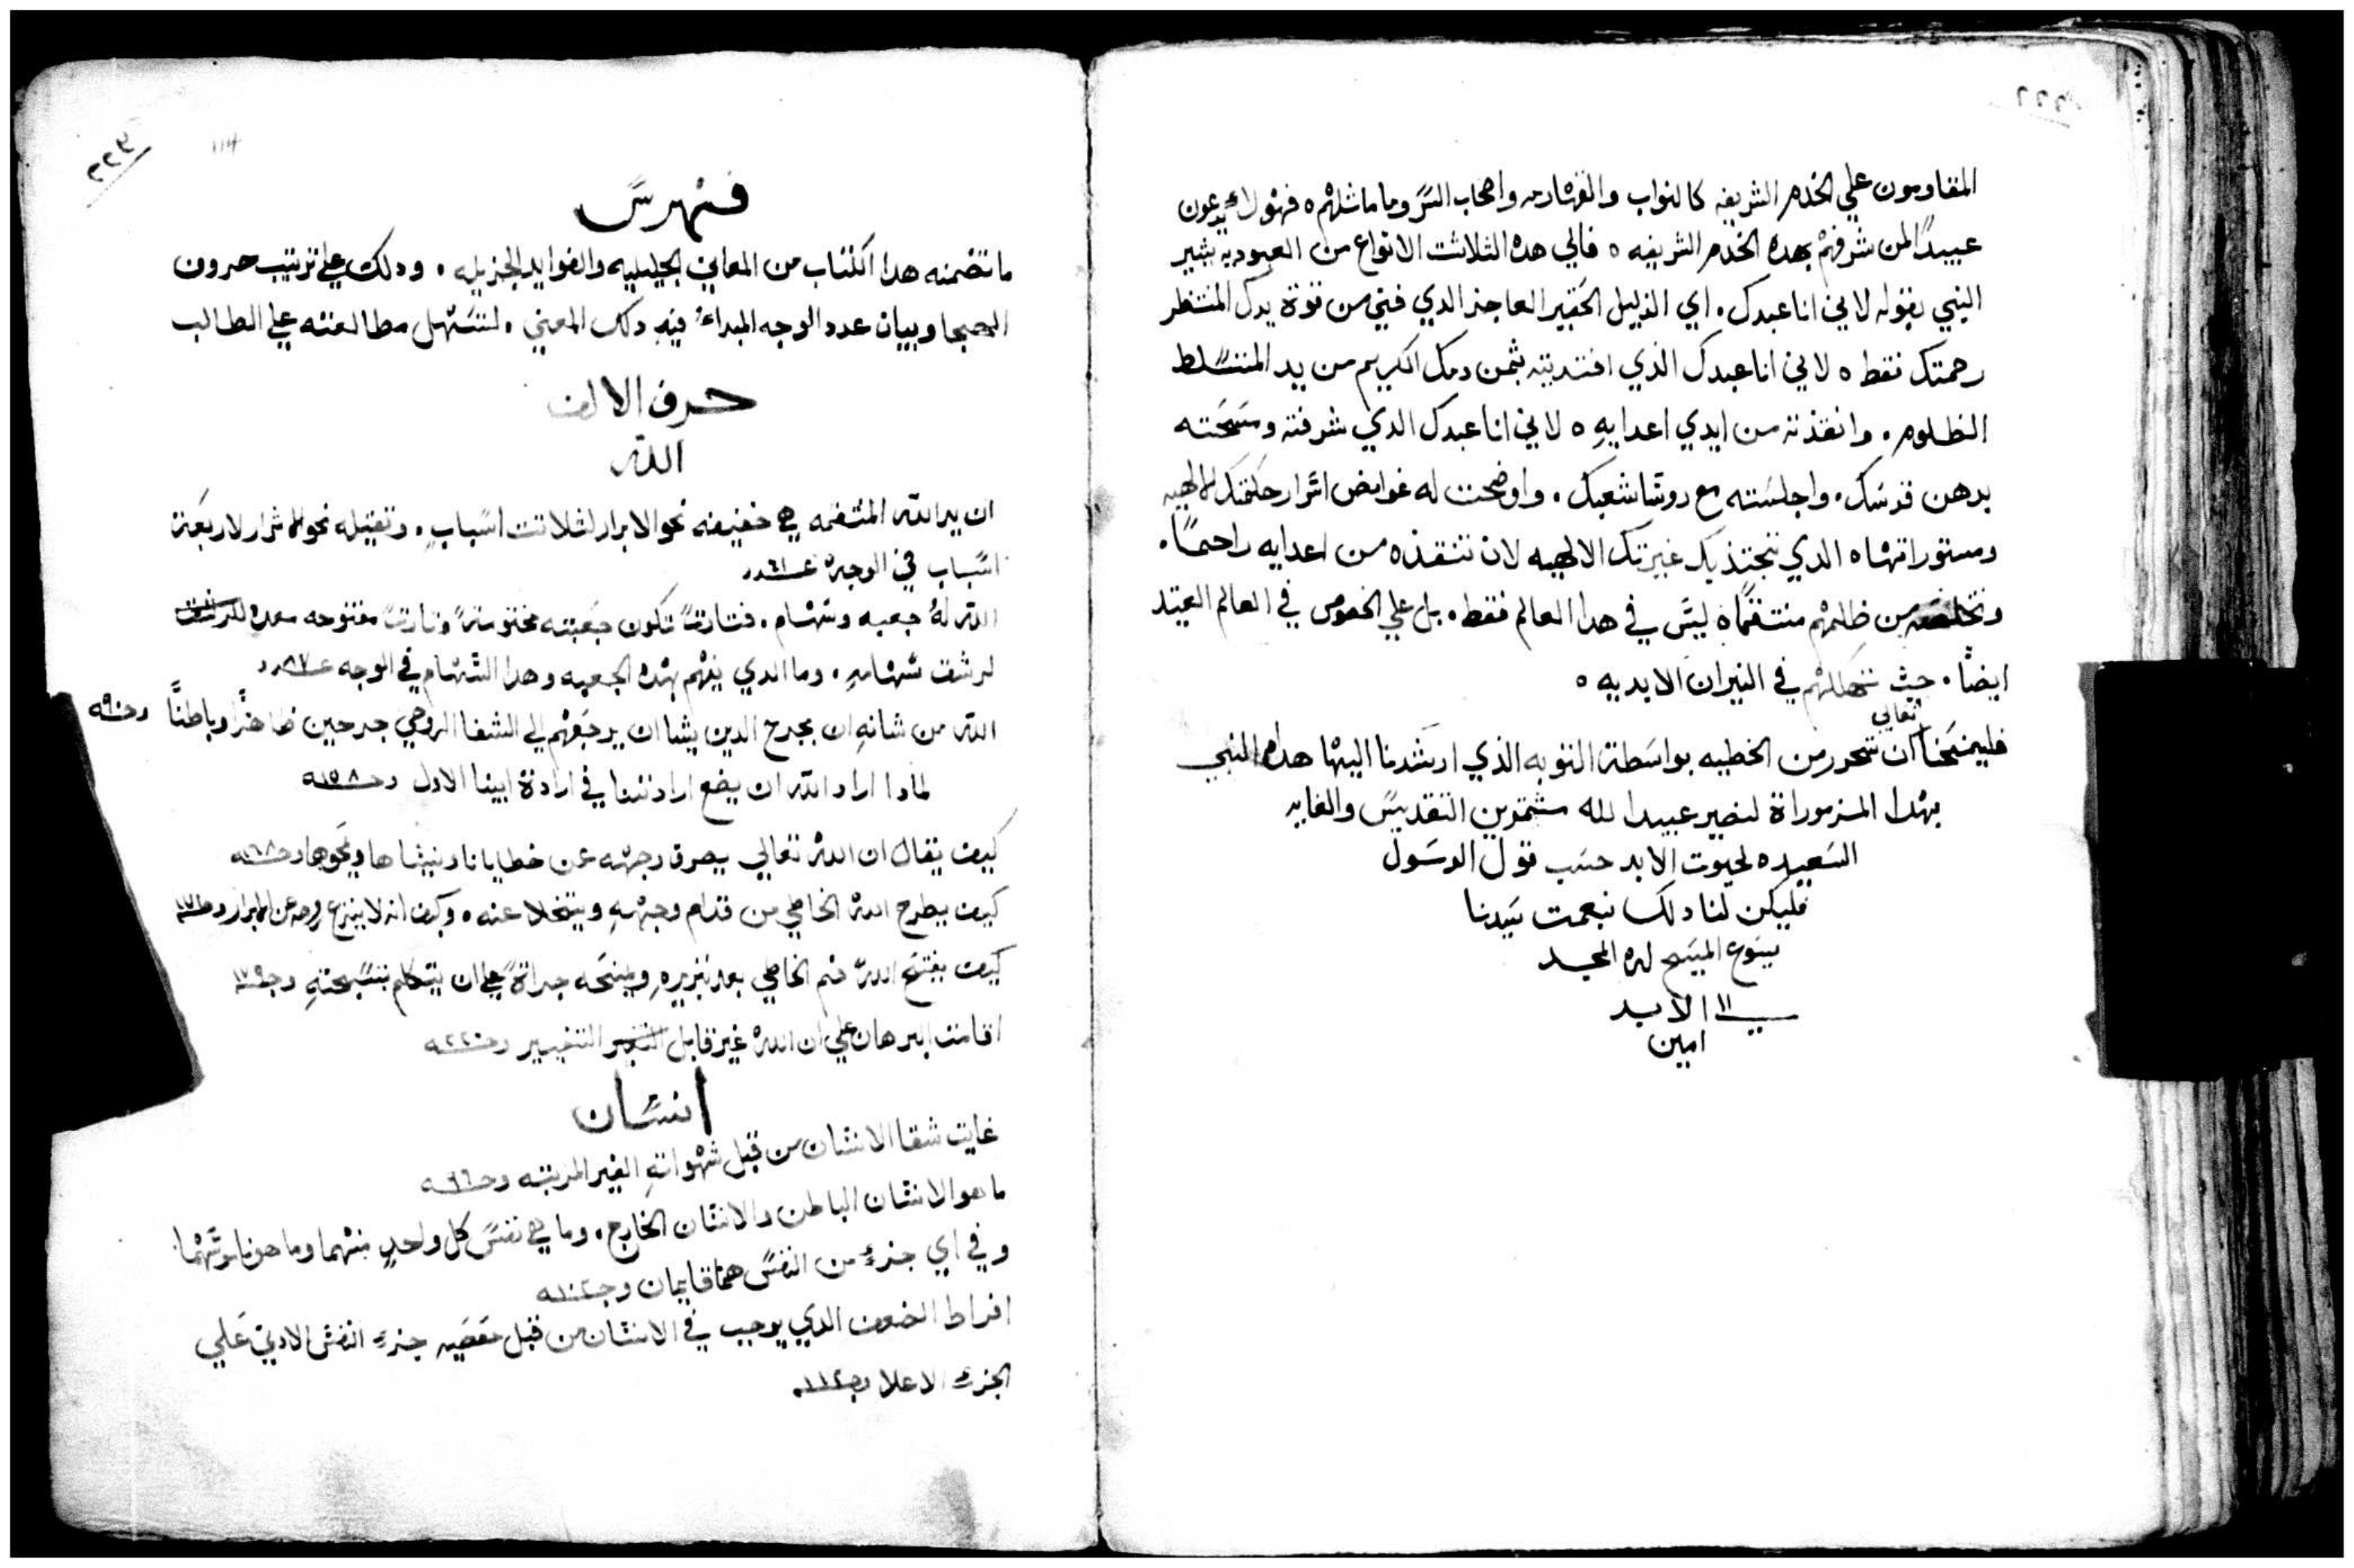 المقاومون علي الخدم الشريفه كالنواب والقهارمه واصحاب السر وما ماثلهم ه فهولاء يدعون
عبيدًا لمن شرفهم بهده الخدم الشريفه ه فالي هده الثلاثت الانواع من العبوديه يشير
النبي بقوله لاني انا عبدك . اي الذليل الحقير العاجز الدي فيّ من قوة يدك المنتظر
رحمتك فقط ه لاني انا عبدك الذي افتديته بثمن دمك الكريم من يد المتسلط
الظلوم . وانقذته من ايدي اعدايهِ ه لاني انا عبدك الدي شرفته ومسحته
بدهن قدسك . واجلسته مع روسا شعبك . واوضحت له غوامض اسرار حكمتك الالهيه
ومستوراتها ه الدي تجتذبك غيرتك الالهيه لان تنقذه من اعدايه راحمًا .
وتخلصه من ظلمهم منتقمًا ه ليس في هدا العالم فقط . بل علي الخصوص في العالم العتيد
ايضًا . حيث تهلكهم في النيران الابديه ه
تعالي
فليمنحنا ان نتحرر من الخطيه بواسطة التوبه الذي ارشدنا اليها هدا النبي
بهدا المزموراة لنصير عبيدا لله مثمرين التقديس والغايه
السعيده لحيوت الابد حسب قول الرسول
فليكن لنا دلك بنعمت سيدنا
يسوع المسيح له المجد
الي الابد
امين
٢٢٣
114
فهرس
ما تضمنه هدا الكتاب من المعاني الجليليه والفوايد الجزيله . ودلك علي ترتيب حروف
الهجا وبيان عدد الوجه المبداءُ فيهِ دلك المعني . لتسهل مطالعته علي الطالب
حرف الالف
الله
ان يد الله المنتقمه هي خفيفه نحو الابرار لثلاثت اسباب . وتقيله نحو الاشرار لاربعة
اسباب في الوجه ٦١
الله لهُ جعبه وسهام . فتارتً تكون جعبته مختومتاً وتارتً مفتوحه معده للرشق
لرشق سهامهِ . وما الدي يفهم بهده الجعبه وهدا السهام في الوجه ٨٧
الله من شانهِ ان يجرح الدين يشا ان يرجعهم الي الشفا الروحي جرحين ظاهرًا وباطنًا وجه ٩٠
لمادا اراد الله ان يضع ارادتنا في ارادة ابينا الاول وجه ١٥٨
كيف يقال ان اللهُ تعالي يصرف وجهه عن خطايانا وينساها ويمحوها وجه ١٦٨
كيف يطرح اللهُ الخاطي من قدام وجههِ ويتخلا عنه . وكيف انه لا ينزع روحه عن الابرار وجه ١٧١
كيف يفتح اللهُ فم الخاطي بعد تبريرهِ ويمنحه جراةً علي ان يتكلم بتسبحتهِ وجه ١٧٩
اقامت البرهان علي ان اللهُ غير قابل التغير التغيير وجه ٢٢٠
انسان
غايت شقا الانسان من قبل شهواتهِ الغير المرتبه وجه ٩٦
ما هو الانسان الباطن والانسان الخارج . وما هي نفس كل واحدٍ منهما وما هو ناموسهما
وفي اي جزءٍ من النفس هما قايمان وجه ١٠٢
افراط الضعف الدي يوجب في الانسان من قبل معصيه جزء النفس الادني علي
الجزء الاعلا وجه ١١٢